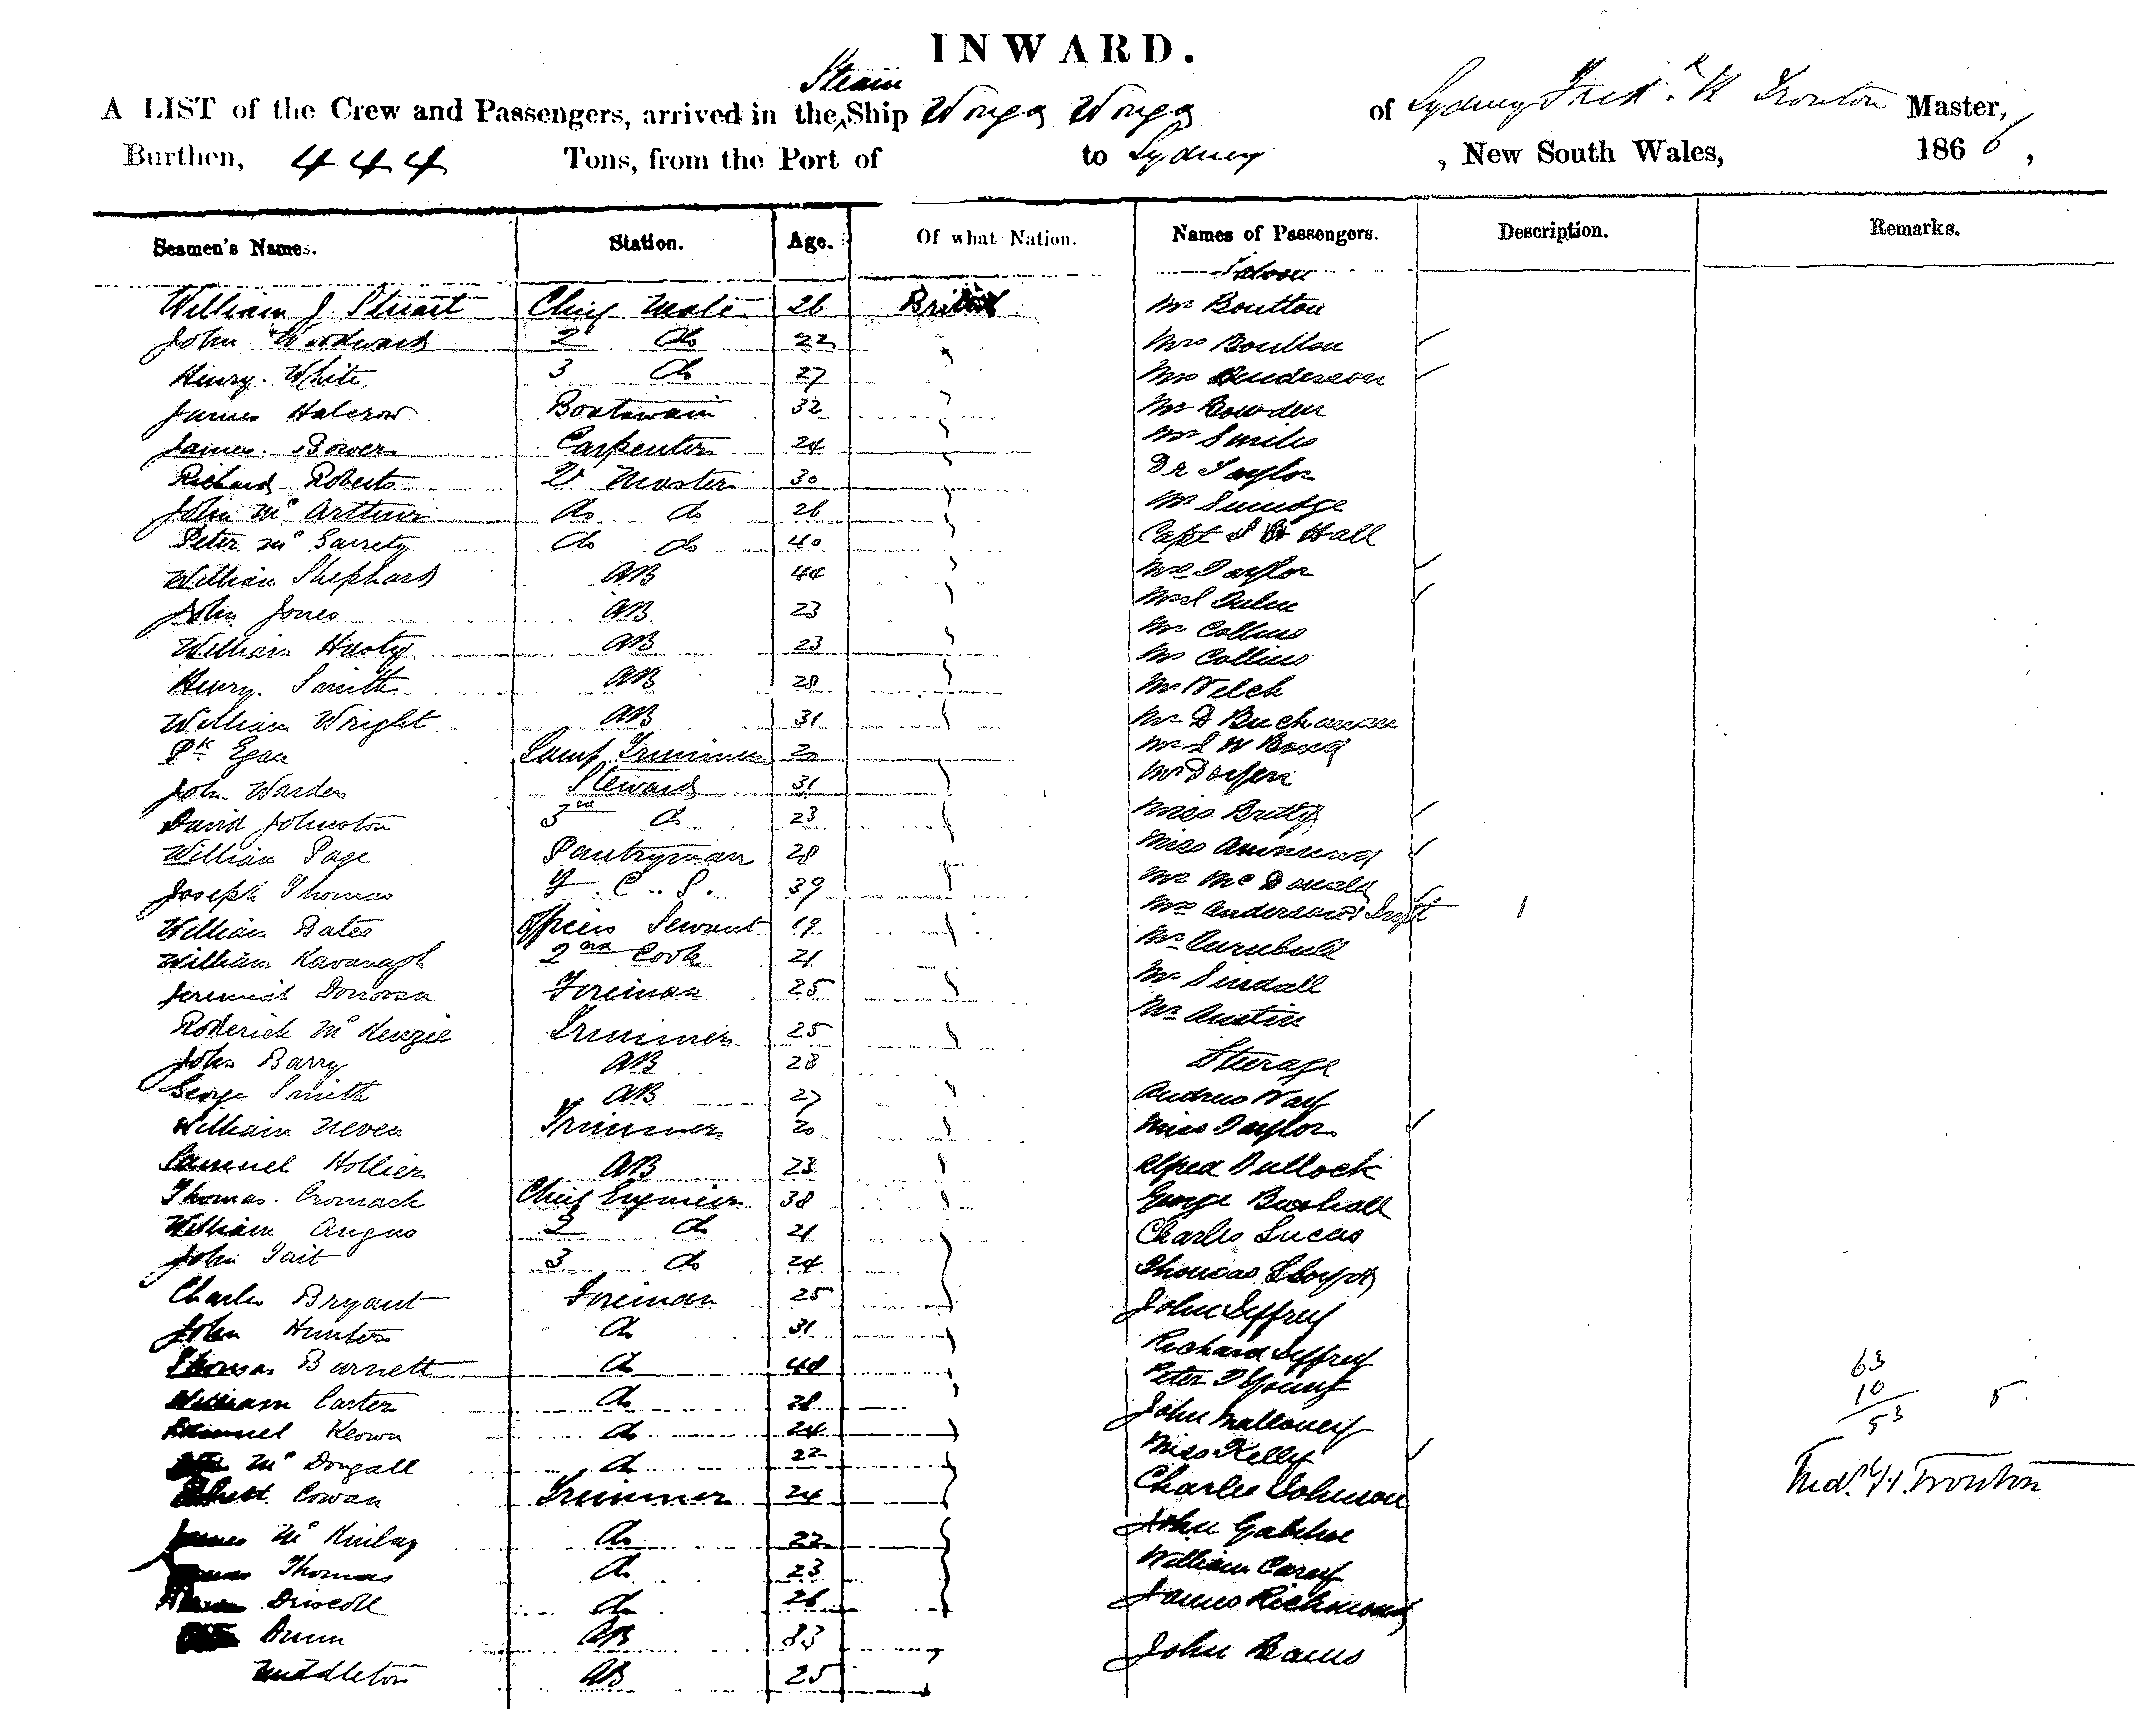 INWARD.
Steam
A LIST of the Crew and Passengers, arrived in the Ship Wonga Wonga of Sydney Fredk. H Trouton Master,
Burthen, 444 Tons, from the Port of to Sydney, New South Wales, 1866,
Seamen's Names. Station. Age. Of what Nation. Names of Passengers. Description. Remarks.
Saloon
William J. Stuart Chief Mate 26 British Mr Boulton
John Woodward 2 do 22 Mrs Boulton
Henry White 3 do 27 Mrs Henderson
James Halcrow Boatswain 32 Mr Bowden
James Bower Carpenter 24 Mr Smiles
Richard Roberts Qr Master 30 Dr Taylor
John Mc Arthur do do 26 Mr
Peter Mc Garrety do do 40 Capt Hall
William Shephard AB 44 Mrs Taylor
John Jones AB 23 Mrs
William Hasty AB 23 Mr Collins
Mr Collins
Henry Smith AB 28 Mr Welch
William Wright AB 31 Mr D Buchanan
Pk Egan Lamp Trimmer 20 Mr
John Warden Steward 31 Mr
David Johnston 3rd do 23 Miss Britty
William Page Pantryman 28 Miss
Joseph Thomas F. C. S. 39 Mr Mc Donald
William Bates Officers Servant 19 Mrs Anderson & Inft 1
William Kavanagh 2nd Cook 21 Mr Turnbull
Jeremiah Donovan Fireman 25 Mr
Roderick Mc Kenzie Trimmer 25 Mr Austin
John Barry AB 28 Steerage
George Smith AB 27 Andrew Way
William Neven Trimmer 20 Miss Taylor
Samuel Hollier AB 23 Alfred Bullock
Thomas Cromack Chief Engineer 38 George Boxhall
William Angus 2 do 21 Charles Lucas
John Tait 3 do 24 Thomas Lloyd
Charles Bryant Fireman 25 John Jeffrey
John Hunter do 31 Richard Jeffrey
Thomas Barnett do 40 Peter D Young
63
William Carter do 28 John Malloney
10
53 5
Samuel Keown do 24 Miss Kelly
Mc Dougall do 22 Charles Coleman
Fredk. H. Trouton
Cowan Trimmer 24 John
James Mc Kinlay do 22 William Carey
James Thomas do 23 James Richmond
Driscoll do 26 John
Dunn AB 33
Middleton AB 25